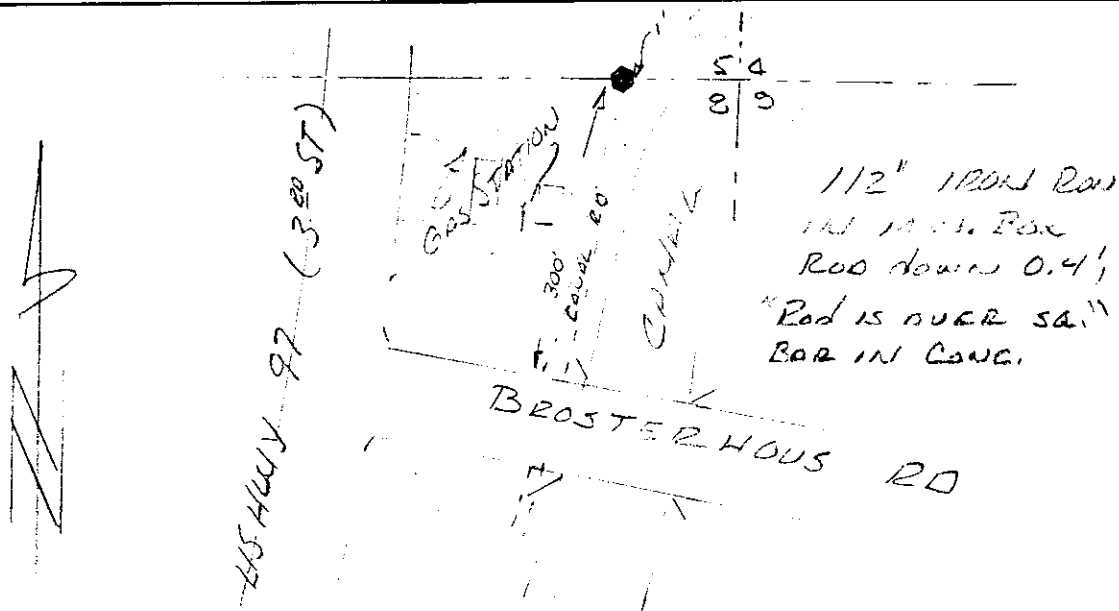 5 4
8 9
US HWY 97 (3RD ST)
GAS STATION
300'
CANAL RD
CANAL
1/2" IRON ROD
IN MON. BOX
ROD DOWN 0.4',
"ROD IS OVER SQ."
BAR IN CONC.
BROSTERHOUS RD
N